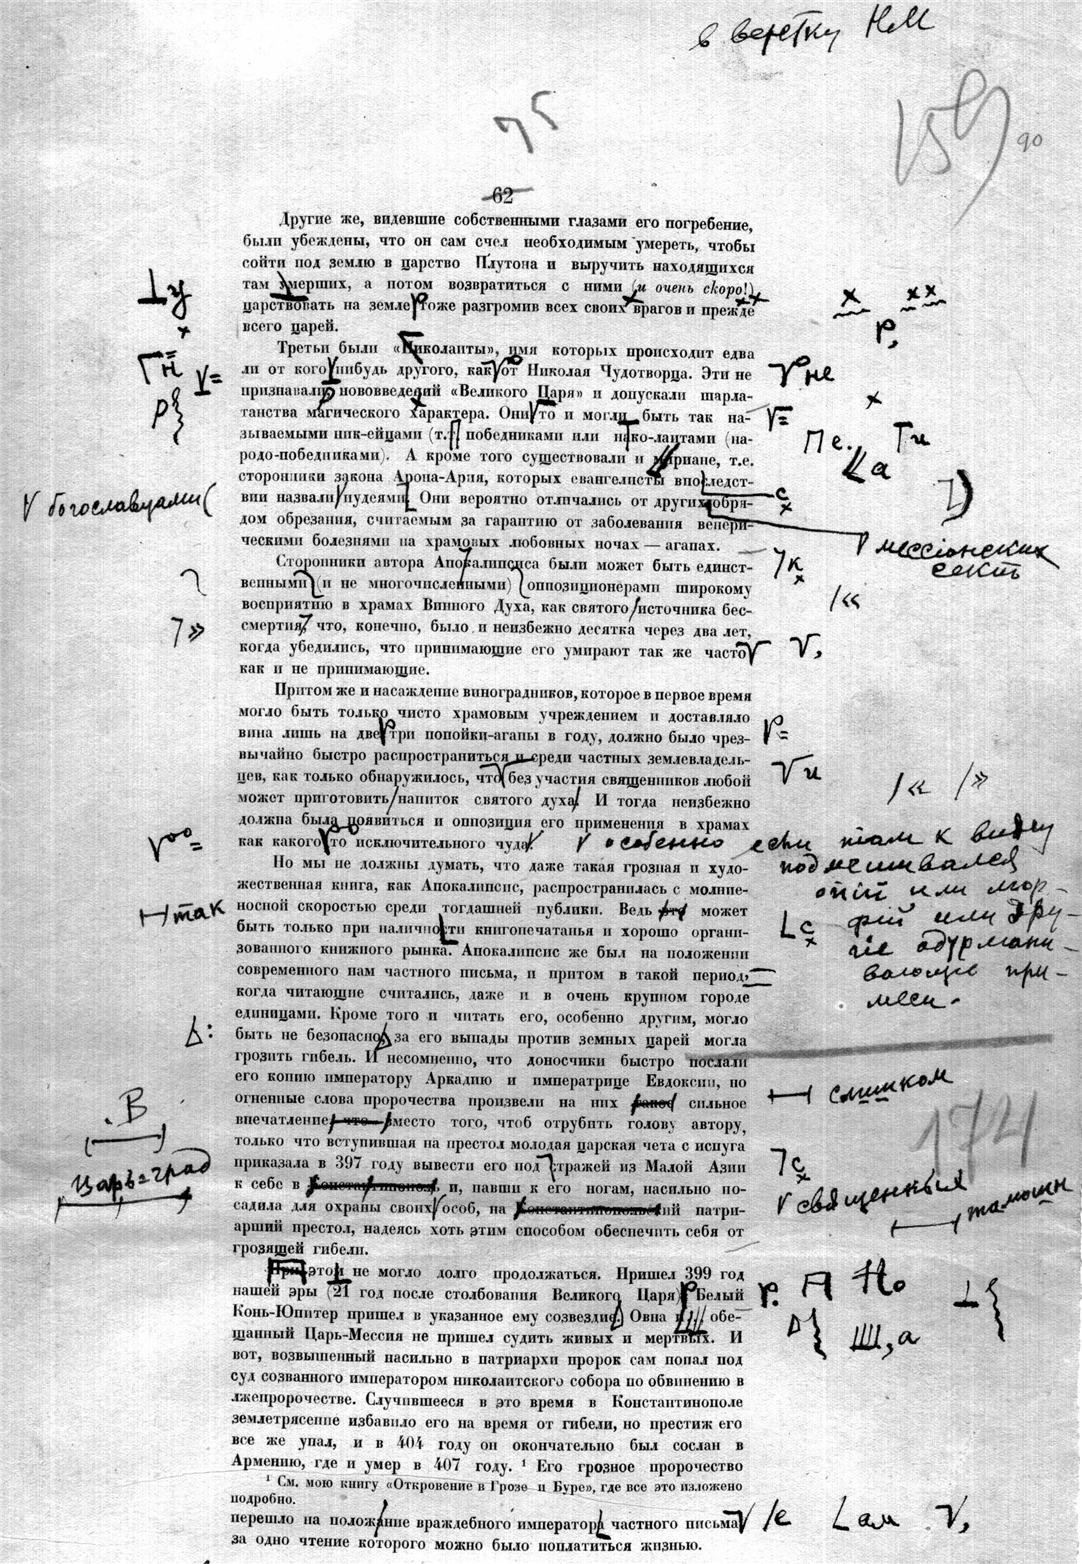 в верстку НМ
75
159
90
62
Другие же, видевшие собственными глазами его погребение,
были убеждены, что он сам счел необходимым умереть, чтобы
сойти под землю в царство Плутона и выручить находящихся
там умерших, а потом возвратиться с ними (и очень скоро!)
царствовать на земле тоже разгромив всех своих врагов и прежде
всего царей.
Третьи были «Николаиты», имя которых происходит едва
ли от кого нибудь другого, как от Николая Чудотворца. Эти не
признавали нововведений «Великого Царя» и допускали шарла-
танства магического характера. Они то и могли быть так на-
зываемыми ник-ейцами (т. победниками или нико-лаитами (на-
родо-победниками). А кроме того существовали и мариане, т.е.
сторонники закона Арона-Ария, которых евангелисты впоследст-
вии назвали иудеями. Они вероятно отличались от других обря-
дом обрезания, считаемым за гарантию от заболевания венери-
ческими болезнями на храмовых любовных ночах — агапах.
Сторонники автора Апокалипсиса были может быть единст-
венными (и не многочисленными) оппозиционерами широкому
восприятию в храмах Винного Духа, как святого источника бес-
смертия, что, конечно, было и неизбежно десятка через два лет,
когда убедились, что принимающие его умирают так же часто
как и не принимающие.
Притом же и насаждение виноградников, которое в первое время
могло быть только чисто храмовым учреждением и доставляло
вина лишь на две три попойки-агапы в году, должно было чрез-
вычайно быстро распространиться и среди частных землевладель-
цев, как только обнаружилось, что без участия священников любой
может приготовить напиток святого духа. И тогда неизбежно
должна была появиться и оппозиция его применения в храмах
как какого то исключительного чуда.
Но мы не должны думать, что даже такая грозная и худо-
жественная книга, как Апокалипсис, распространилась с молние-
носной скоростью среди тогдашней публики. Ведь это может
быть только при наличности книгопечатанья и хорошо органи-
зованного книжного рынка. Апокалипсис же был на положении
современного нам частного письма, и притом в такой период,
когда читающие считались, даже и в очень крупном городе
единицами. Кроме того и читать его, особенно другим, могло
быть не безопасно, за его выпады против земных царей могла
грозить гибель. И несомненно, что доносчики быстро послали
его копию императору Аркадию и императрице Евдоксии, но
огненные слова пророчества произвели на них сильное
впечатление что вместо того, чтоб отрубить голову автору,
только что вступившая на престол молодая царская чета с испуга
приказала в 397 году вывести его под стражей из Малой Азии
к себе в Константинополь, и, павши к его ногам, насильно по-
садила для охраны своих особ, на Константинопольский патри-
арший престол, надеясь хоть этим способом обеспечить себя от
грозящей гибели.
При этом не могло долго продолжаться. Пришел 399 год
нашей эры (21 год после столбования Великого Царя), Белый
Конь-Юпитер пришел в указанное ему созвездие Овна обе-
щанный Царь-Мессия не пришел судить живых и мертвых. И
вот, возвышенный насильно в патриархи пророк сам попал под
суд созванного императором николаитского собора по обвинению в
лжепророчестве. Случившееся в это время в Константинополе
землетрясение избавило его на время от гибели, но престиж его
все же упал, и в 404 году он окончательно был сослан в
Армению, где и умер в 407 году. ¹ Его грозное пророчество
¹ См. мою книгу «Откровение в Грозе и Буре», где все это изложено
подробно.
перешло на положание враждебного императора частного письма
за одно чтение которого можно было поплатиться жизнью.
у
н
р
богославцами (
»
так
В
Царь-град
р,
не
Пе.
и
а
с
мессионских
сект
к
«
и
« »
особенно если там к вину
подмешивался
опий или мор-
фий или дру-
гие одурмани-
вающие при-
меси.
с
слишком
174
с
священных
тамошн
А Но
Ш, а
е
ам